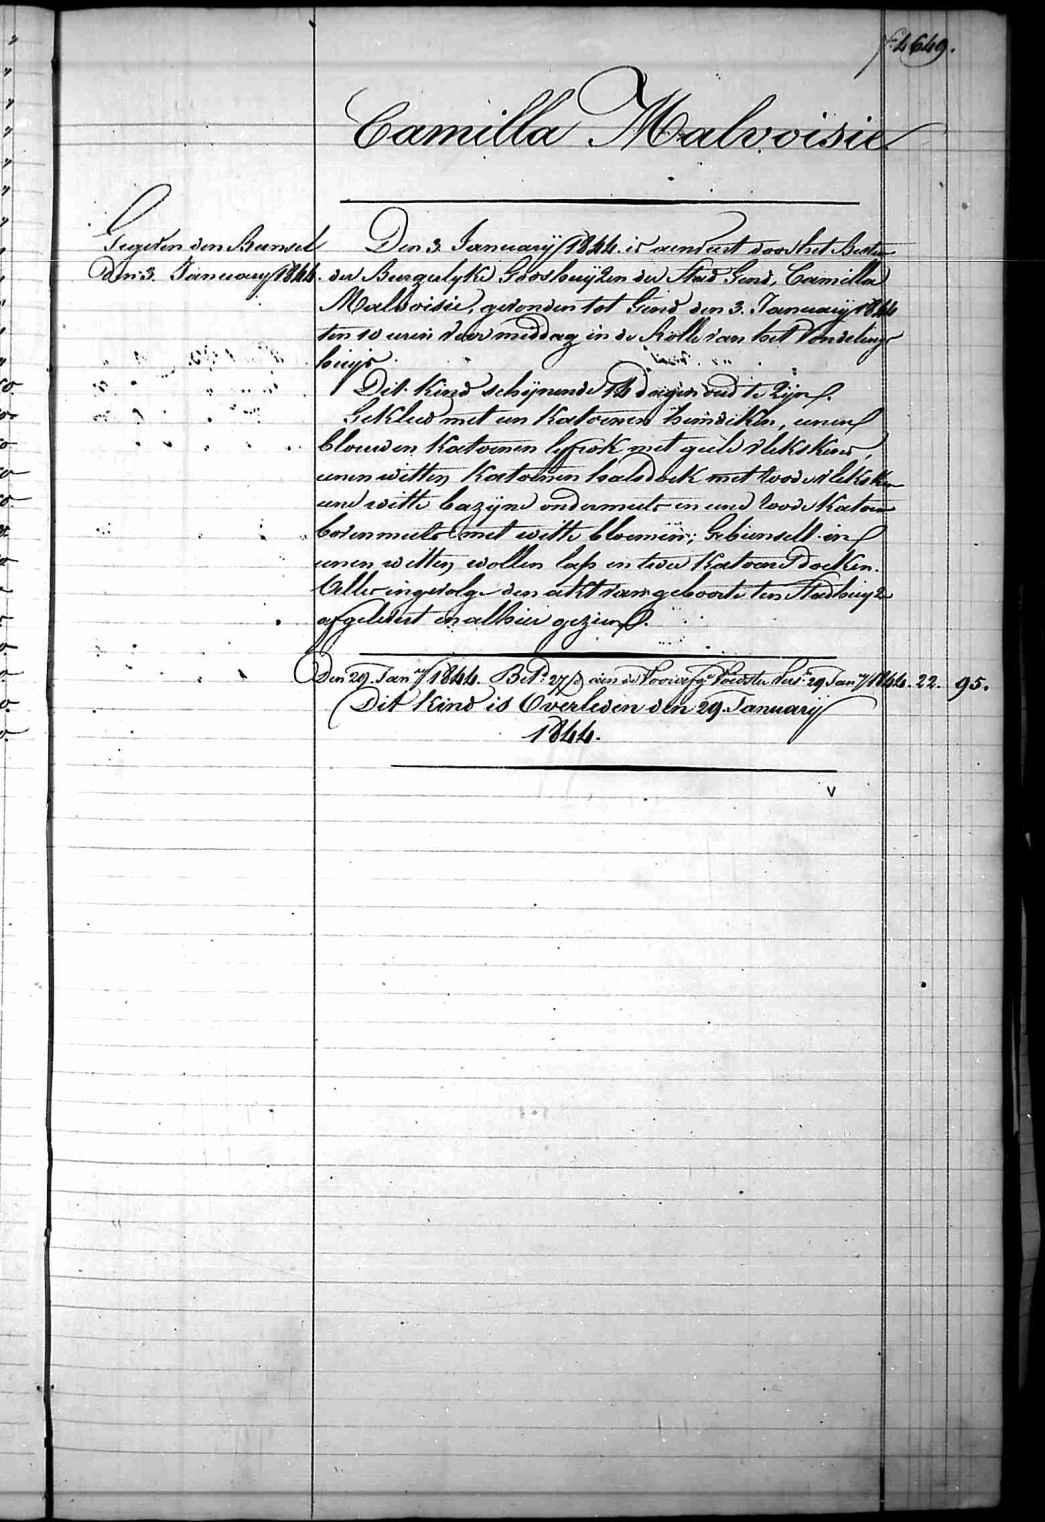 f° 4649.
Camilla Malvoisie
Gegeven den Bunsel
den 3. January 1844.
Den 3. Januarÿ 1844 is aenveert door het Bestier
der Burgerlyke Godshuÿzen der Stad Gend, Camilla
Malvoisie, gevonden tot Gend den 3. Januarÿ 1844
ten 10 uren voormiddag in de Rolle van het Vondelings
huys.
Dit Kind schynende 14 dagen oud te zyn.
Gekleed met een Katoenen hemdeken, eenen
blauwen Katoenen lyfrok met geele vlekskens,
eenen witten Katoenen halsdoek met roode vlekskens
eene witte bazyne ondermuts en eene roode Katoene
bovenmuts met witte bloemen; Gebunselt in
eenen witten wollen lap en twee Katoene doeken.
Alles ingevolge den akt van geboorte ten Stadhuyze
afgelevert en alhier gezien.
Den 29 Jany 1844. Bet. 27 aen de Voedster 29 Jany 1844. 22. 95.
Dit Kind is Overleden den 29 January
1844.
v